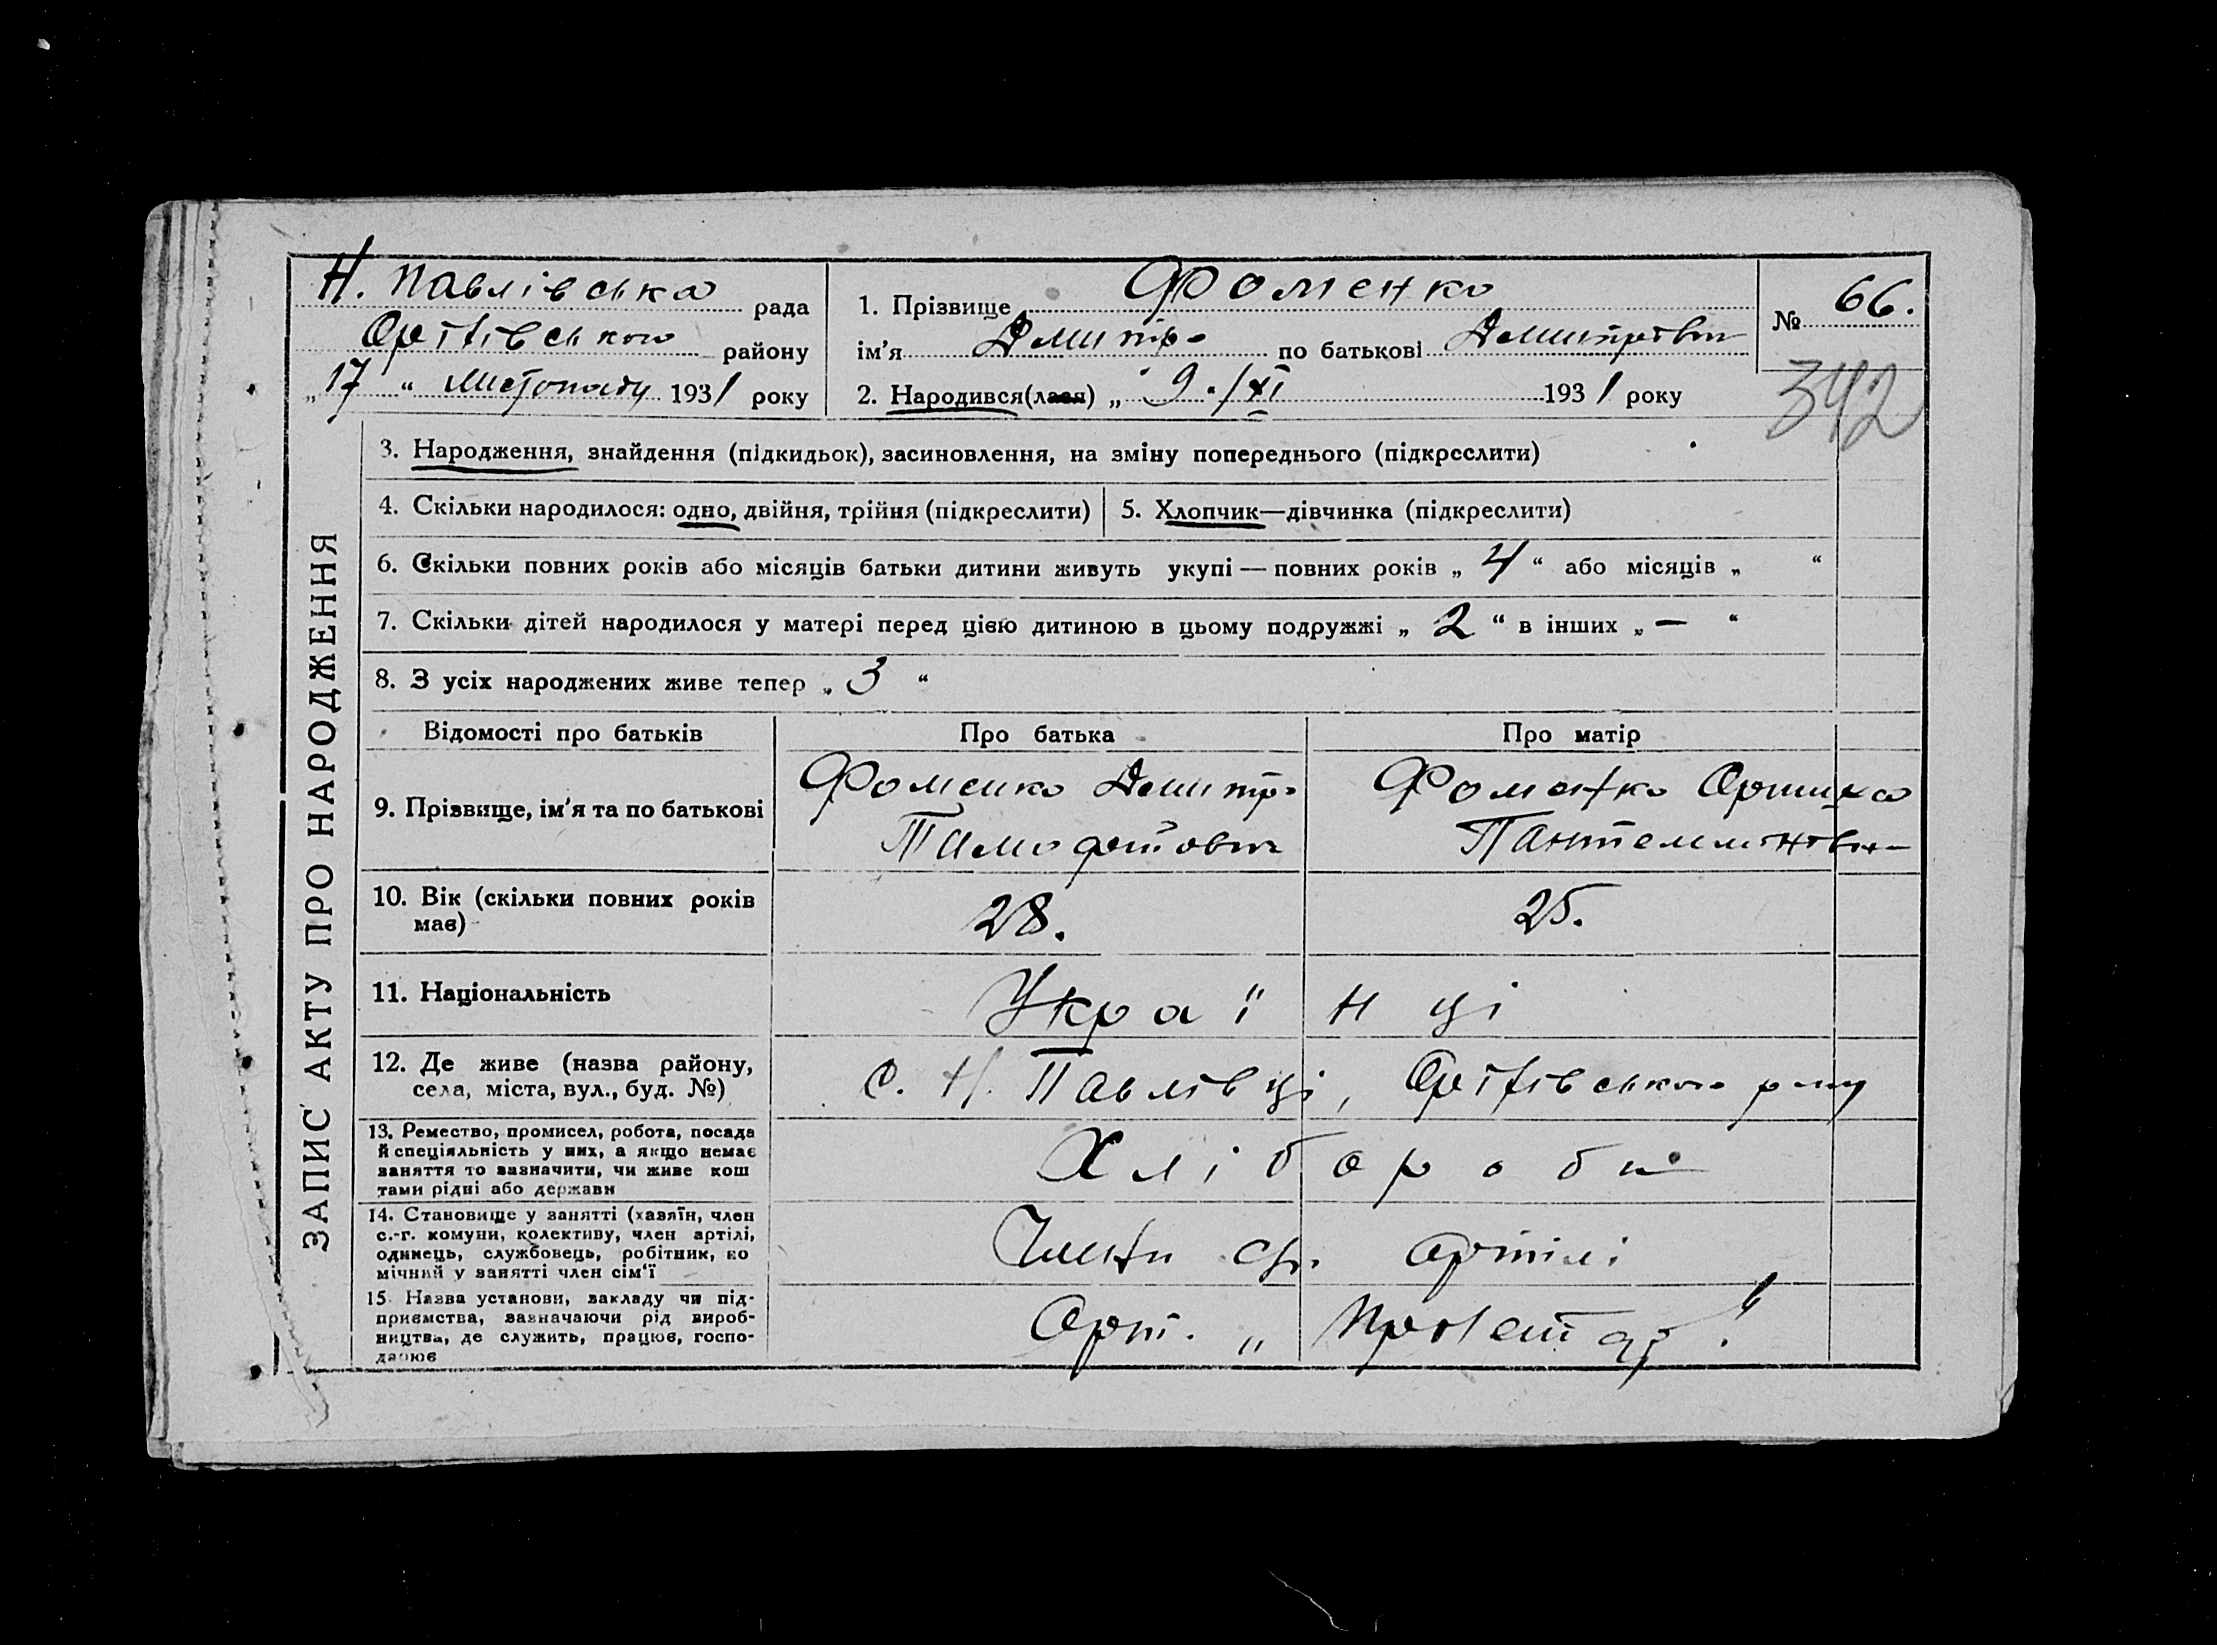 Н. Павлівська рада
Оріхівського району
„17“ Листопаду 1931 року
1. Прізвище Фоменко
ім’я Дмитро по батькові Дмитрович
2. Народився(лася) „9“/XI 1931 року
№ 66.
342
ЗАПИС АКТУ ПРО НАРОДЖЕННЯ
3. Народження, знайдення (підкидьок), засиновлення, на зміну попереднього (підкреслити)
4. Скільки народилося: одно, двійня, трійня (підкреслити) 5. Хлопчик—дівчинка (підкреслити)
6. Скільки повних років або місяців батьки дитини живуть укупі — повних років „4“ або місяців „ “
7. Скільки дітей народилося у матері перед цією дитиною в цьому подружжі „2“ в інших „—“
8. З усіх народжених живе тепер „3“
Відомості про батьків Про батька Про матір
9. Прізвище, ім’я та по батькові
Фоменко Дмитро
Тимофійович
Фоменко Оришка
10. Вік (скільки повних років
має)
28. 25.
11. Національність Українці
12. Де живе (назва району,
села, міста, вул., буд. №)
с. Н. Павлівці, Оріхівського р-ну
13. Ремество, промисел, робота, посада
й спеціяльність у них, а якщо немає
заняття то зазначити, чи живе кош
тами рідні або держави
Хлібороби
14. Становище у занятті (хазяїн, член
с.-г. комуни, колективу, член артілі,
одинець, службовець, робітник, по
мічний у занятті член сім’ї
Члени с.г. артілі
15. Назва установи, закладу чи під-
приємства, зазначаючи рід вироб-
ництва, де служить, працює, госпо-
дарює
Арт. „Пролетар“